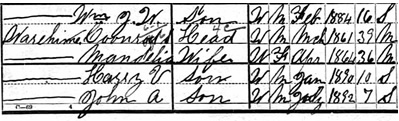 Wm J. W. Son W M Feb 1884 16 S
Warehime Conrad Head W M Mch 1861 39 M
— Mandelia Wife W F Apr 1864 36 M
— Harry V Son W M Jan 1890 10 S
— John A Son W M July 1892 7 S